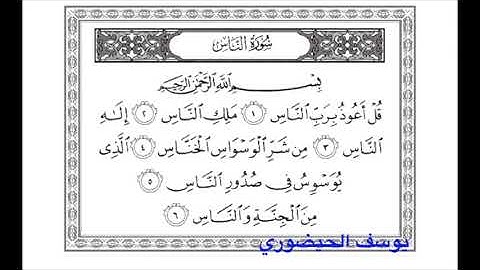 سُورَةُ النَّاسِ
بِسْمِ اللَّهِ الرَّحْمَٰنِ الرَّحِيمِ
قُلْ أَعُوذُ بِرَبِّ ٱلنَّاسِ ١ مَلِكِ ٱلنَّاسِ ٢ إِلَٰهِ
ٱلنَّاسِ ٣ مِن شَرِّ ٱلْوَسْوَاسِ ٱلْخَنَّاسِ ٤ ٱلَّذِى
يُوَسْوِسُ فِى صُدُورِ ٱلنَّاسِ ٥
مِنَ ٱلْجِنَّةِ وَٱلنَّاسِ ٦
يوسف الحيضوري